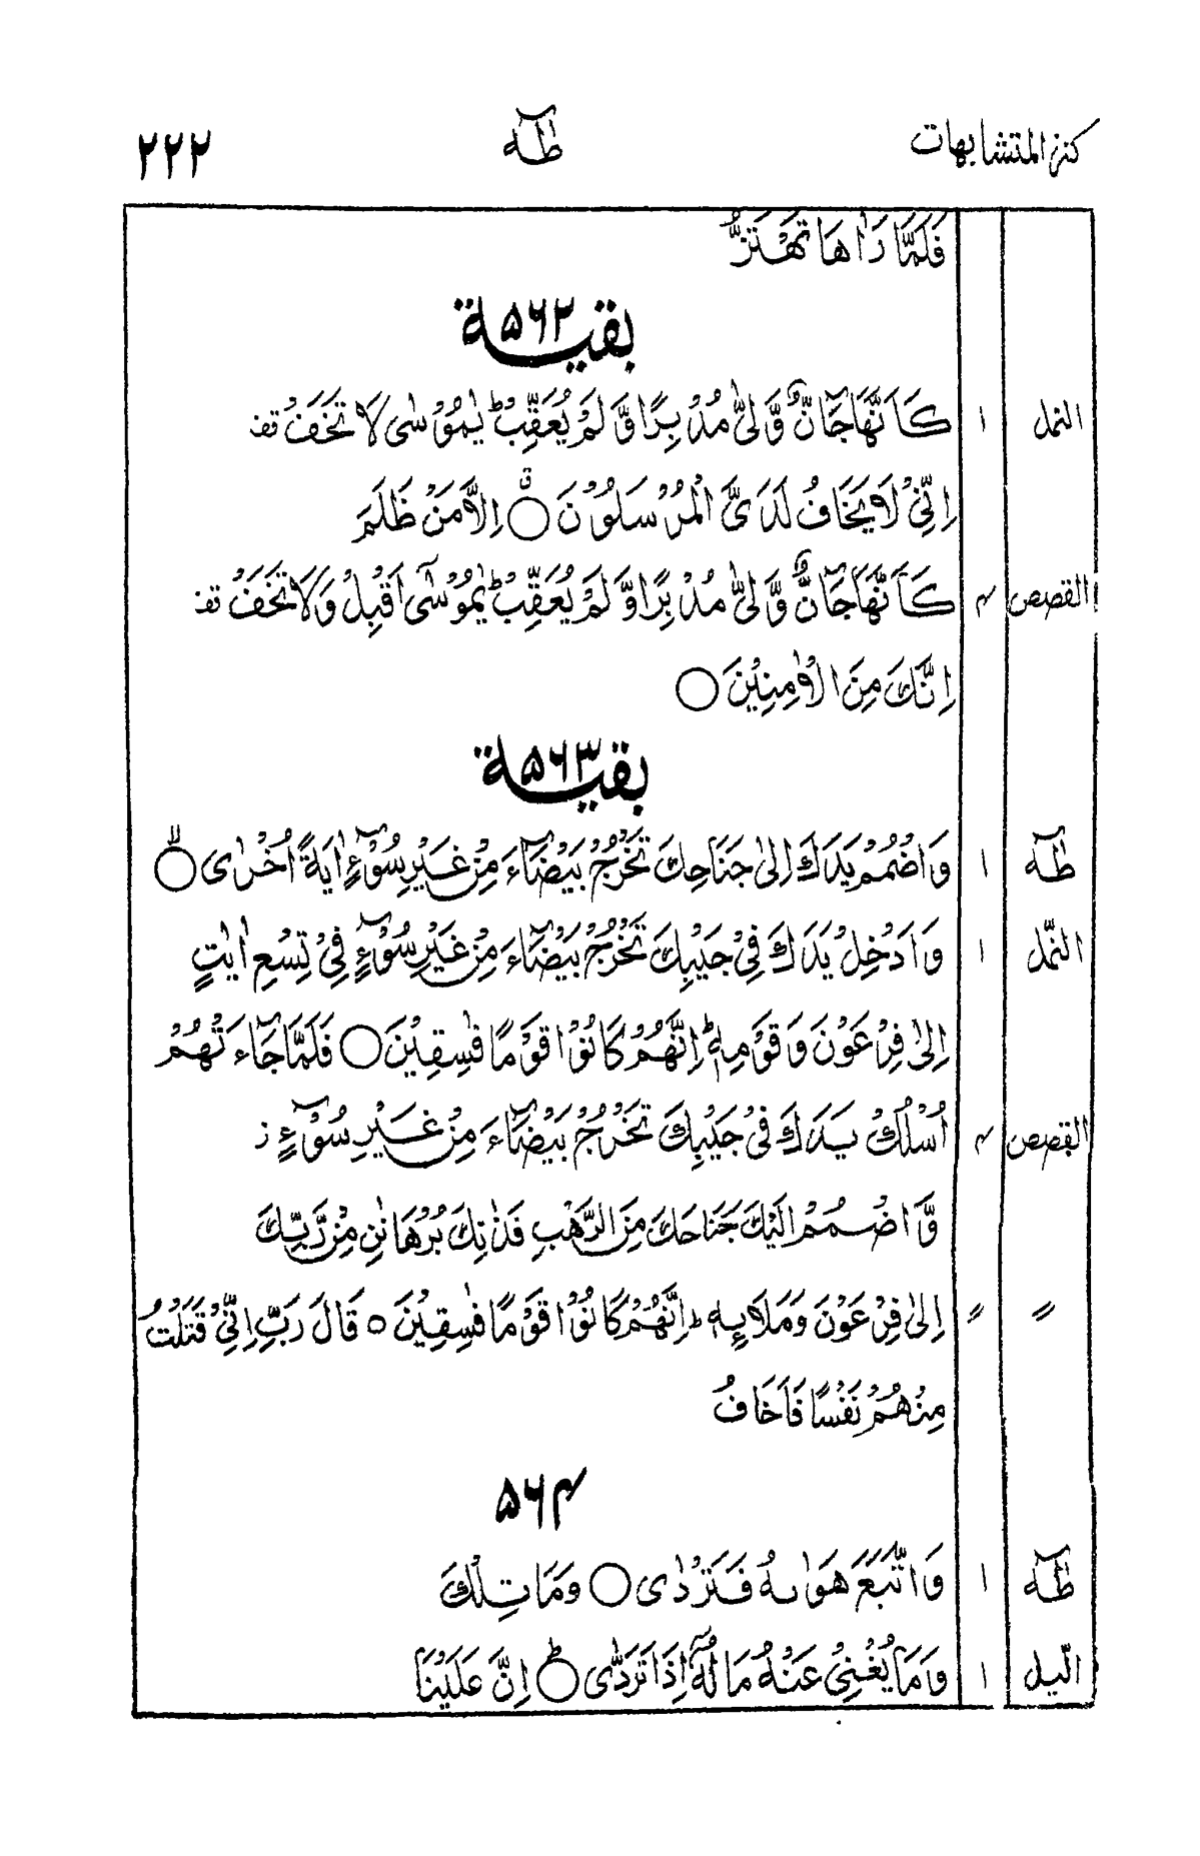 كنز المتشابهات طٰهٰ ۲۲۲
فَلَمَّا رَاٰهَا تَهْتَزُّ
بقية ۵۶۲
النمل ۱ كَاَنَّهَا جَآنٌّ وَّلّٰى مُدْبِرًا وَّلَمْ يُعَقِّبْ ؕ يٰمُوْسٰى لَا تَخَفْ قف
اِنِّىْ لَا يَخَافُ لَدَىَّ الْمُرْسَلُوْنَ ۝ ق اِلَّا مَنْ ظَلَمَ
القصص ۴ كَاَنَّهَا جَآنٌّ وَّلّٰى مُدْبِرًا وَّلَمْ يُعَقِّبْ ؕ يٰمُوْسٰٓى اَقْبِلْ وَلَا تَخَفْ قف
اِنَّكَ مِنَ الْاٰمِنِيْنَ ۝
بقية ۵۶۳
طٰهٰ ۱ وَاضْمُمْ يَدَكَ اِلٰى جَنَاحِكَ تَخْرُجْ بَيْضَآءَ مِنْ غَيْرِ سُوْٓءٍ اٰيَةً اُخْرٰى ۝ۙ
النّمل ۱ وَاَدْخِلْ يَدَكَ فِىْ جَيْبِكَ تَخْرُجْ بَيْضَآءَ مِنْ غَيْرِ سُوْٓءٍ فِىْ تِسْعِ اٰيٰتٍ
اِلٰى فِرْعَوْنَ وَقَوْمِهٖ ؕ اِنَّهُمْ كَانُوْا قَوْمًا فٰسِقِيْنَ ۝ فَلَمَّا جَآءَتْهُمْ
القصص ۴ اُسْلُكْ يَدَكَ فِىْ جَيْبِكَ تَخْرُجْ بَيْضَآءَ مِنْ غَيْرِ سُوْٓءٍ ز
وَّاضْمُمْ اِلَيْكَ جَنَاحَكَ مِنَ الرَّهْبِ فَذٰنِكَ بُرْهَانٰنِ مِنْ رَّبِّكَ
〃 〃 اِلٰى فِرْعَوْنَ وَمَلَا۟ئِهٖ ؕ اِنَّهُمْ كَانُوْا قَوْمًا فٰسِقِيْنَ ۝ قَالَ رَبِّ اِنِّىْ قَتَلْتُ
مِنْهُمْ نَفْسًا فَاَخَافُ
۵۶۴
طٰهٰ ۱ وَاتَّبَعَ هَوٰىهُ فَتَرْدٰى ۝ وَمَا تِلْكَ
الّيل ۱ وَمَا يُغْنِىْ عَنْهُ مَالُهٗٓ اِذَا تَرَدّٰى ۝ؕ اِنَّ عَلَيْنَا